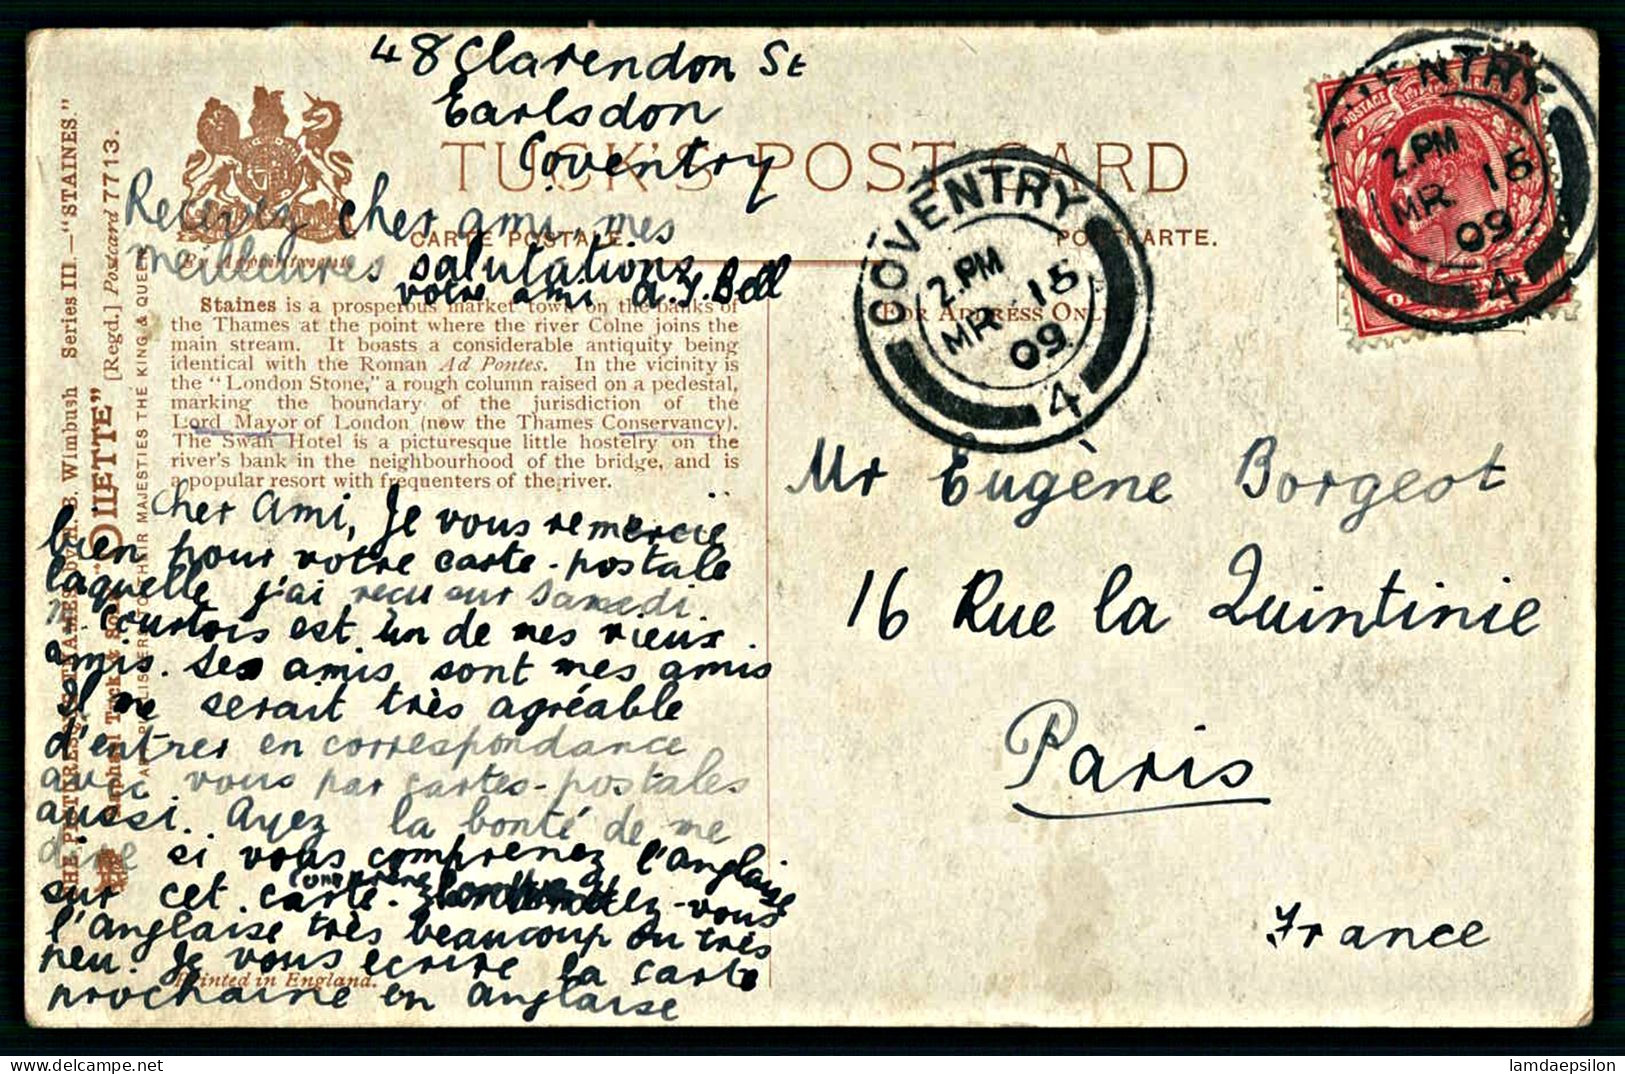 48 Clarendon St
Earlsdon
Coventry
TUCK'S POST CARD
CARTE POSTALE.
POSTKARTE.
By Appointment.
FOR ADDRESS ONLY
Recevez cher ami, mes
meilleures salutations
votre ami A.Y. Bell
Staines is a prosperous market town on the banks of
the Thames at the point where the river Colne joins the
main stream. It boasts a considerable antiquity being
identical with the Roman Ad Pontes. In the vicinity is
the "London Stone," a rough column raised on a pedestal,
marking the boundary of the jurisdiction of the
Lord Mayor of London (now the Thames Conservancy).
The Swan Hotel is a picturesque little hostelry on the
river's bank in the neighbourhood of the bridge, and is
a popular resort with frequenters of the river.
Cher Ami, Je vous remercie
bien pour votre carte-postale
laquelle j'ai recu sur Samedi.
M. Courtois est un de mes vieux
amis. Ses amis sont mes amis
Il me serait très agréable
d'entrer en correspondance
avec vous par cartes-postales
aussi. Ayez la bonté de me
dire si vous comprenez l'anglaise
sur cet carte. Comprenez-vous
l'anglaise très beaucoup ou très
peu. Je vous ecrire la carte
prochaine en anglaise
Printed in England.
Series III.—"STAINES."
"OILETTE" [Regd.] Postcard 77713.
COVENTRY
2.PM
MR 15
09
4
COVENTRY
2.PM
MR 15
09
4
POSTAGE
Mr Eugène Borgeot
16 Rue la Quintinie
Paris
France
lamdaepsilon